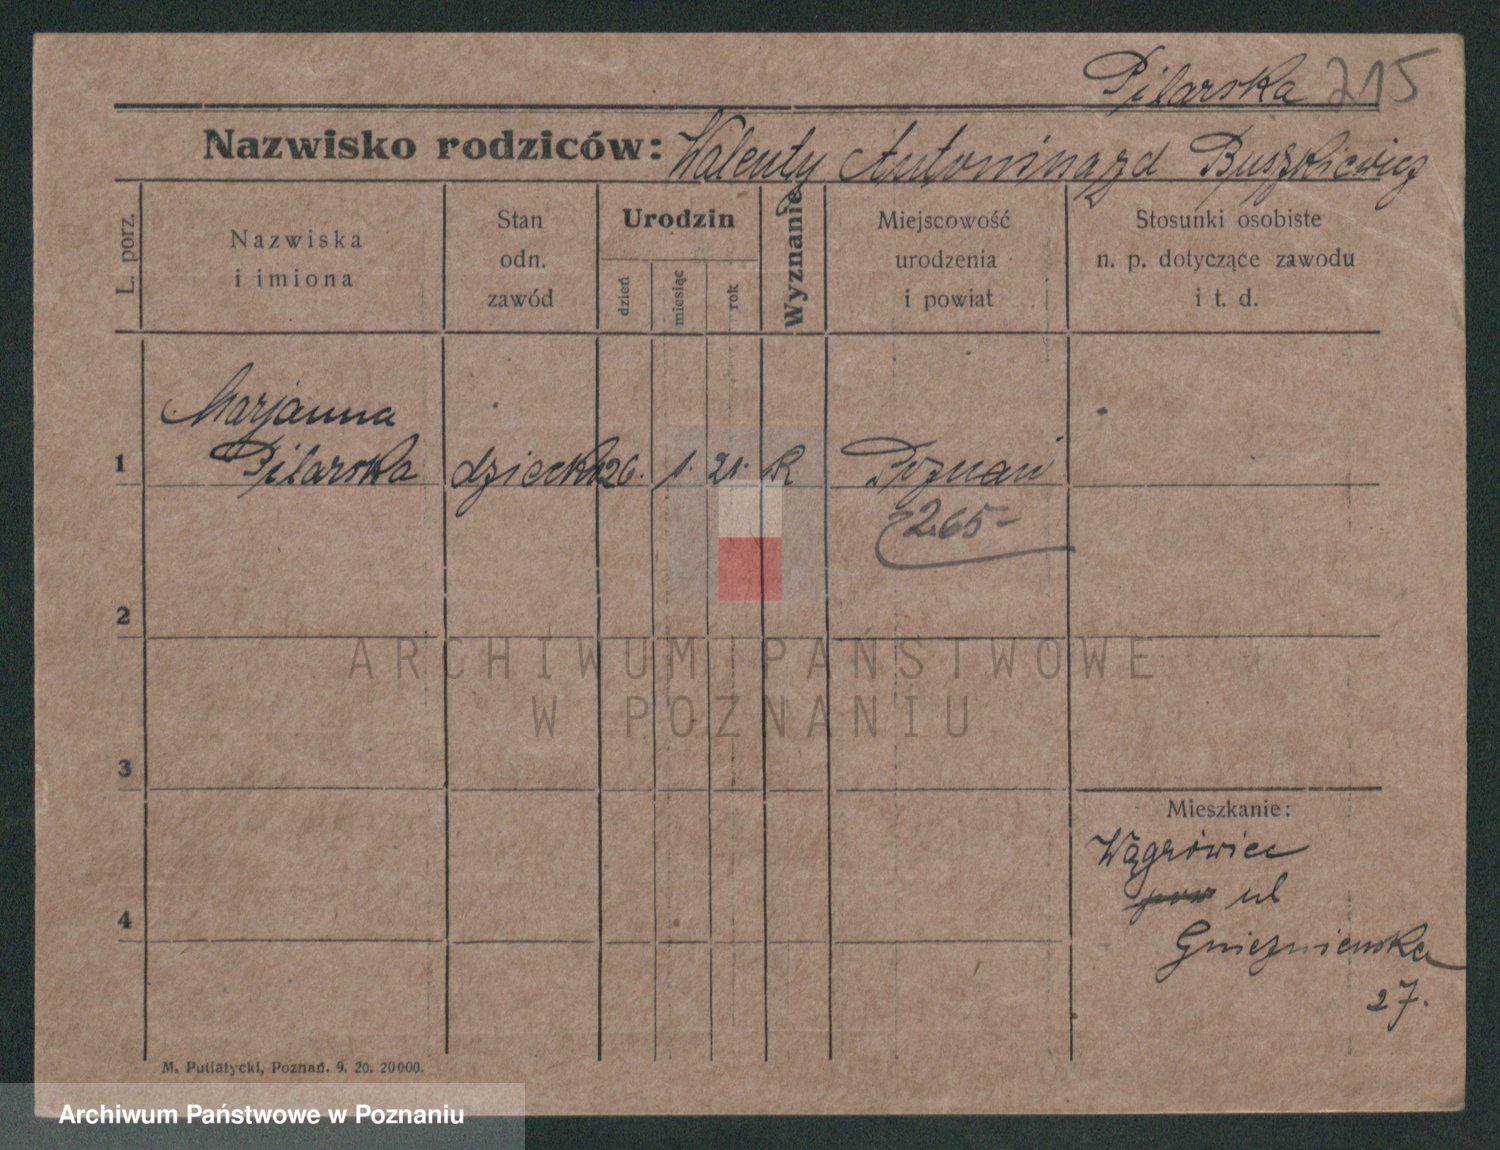 Pilarska 215
Nazwisko rodziców: Walenty Antonina zd Buszkiewicz
L. porz.
Nazwiska
i imiona
Stan
odn.
zawód
Urodzin
dzień
miesiąc
rok
Wyznanie
Miejscowość
urodzenia
i powiat
Stosunki osobiste
n. p. dotyczące zawodu
i t. d.
Marjanna
1 Pilarska dziecko 26. 1. 21. R Poznań
265-
2
ARCHIWUM PAŃSTWOWE
W POZNANIU
3
Mieszkanie:
Wągrówiec
pow ul
4
Gnieznienska
27.
M. Putiatycki, Poznań. 9. 20. 20000.
Archiwum Państwowe w Poznaniu